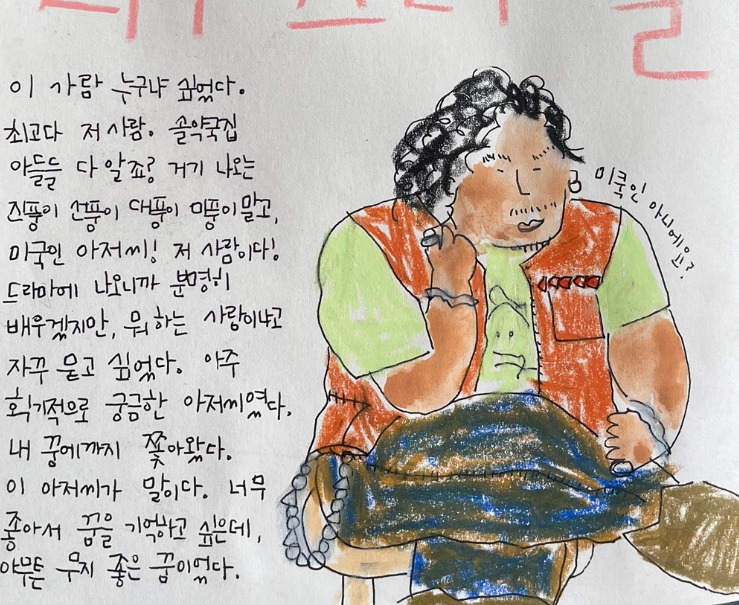 이 사람 누구냐 싶었다.
최고다 저 사람. 솔약국집
아들들 다 알죠? 거기 나오는
진풍이 선풍이 대풍이 미풍이 말고,
미국인 아저씨! 저 사람이다!
드라마에 나오니까 분명히
배우겠지만, 뭐 하는 사람이냐고
자꾸 묻고 싶었다. 아주
획기적으로 궁금한 아저씨였다.
내 꿈에까지 쫓아왔다.
이 아저씨가 말이다. 너무
좋아서 꿈을 기억하고 싶은데,
아무튼 무지 좋은 꿈이었다.
미국인 아니에요?